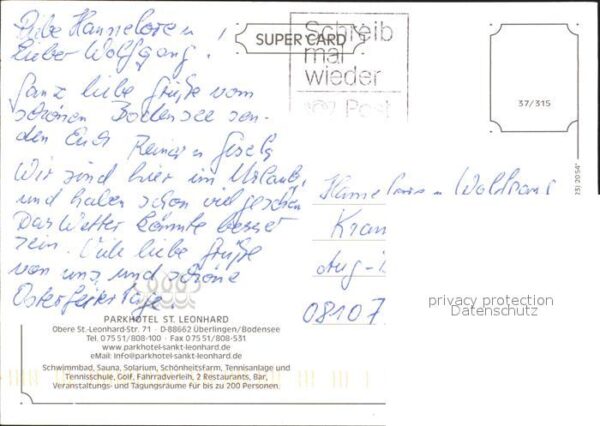 Liebe Hannelore u
Lieber Wolfgang!
Ganz liebe Grüße vom
schönen Bodensee sen-
den Euch Reiner u Gisela
Wir sind hier im Urlaub,
und haben schon viel gesehen
Das Wetter könnte besser
sein. Viele liebe Grüße
von uns und schöne
Osterfeiertage
SUPER CARD
Schreib
mal
wieder
Post
37/315
Hannelore u Wolfgang
Kran
Aug-
08107
privacy protection
Datenschutz
PARKHOTEL ST. LEONHARD
Obere St.-Leonhard-Str. 71 D-88662 Überlingen/Bodensee
Tel. 07551/808-100 Fax 07551/808-531
www.parkhotel-sankt-leonhard.de
eMail: info@parkhotel-sankt-leonhard.de
Schwimmbad, Sauna, Solarium, Schönheitsfarm, Tennisanlage und
Tennisschule, Golf, Fahrradverleih, 2 Restaurants, Bar,
Veranstaltungs- und Tagungsräume für bis zu 200 Personen.